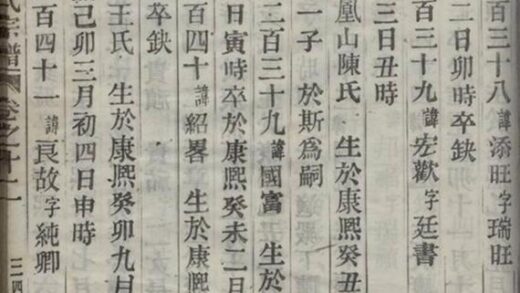 百三十八諱添旺字瑞旺
二日卯時卒缺
百三十九諱宏歡字廷書
三日丑時
凰山陳氏 生於康熙癸丑
一子 於斯為嗣
二百三十九諱國富 生於
日寅時卒於康熙癸未二日
百四十諱紹畧 生於康熙
卒缺
王氏 生於康熙癸卯九月
己卯三月初四日申時
百四十一諱良故字純卿
氏宗譜 卷之十二 三四